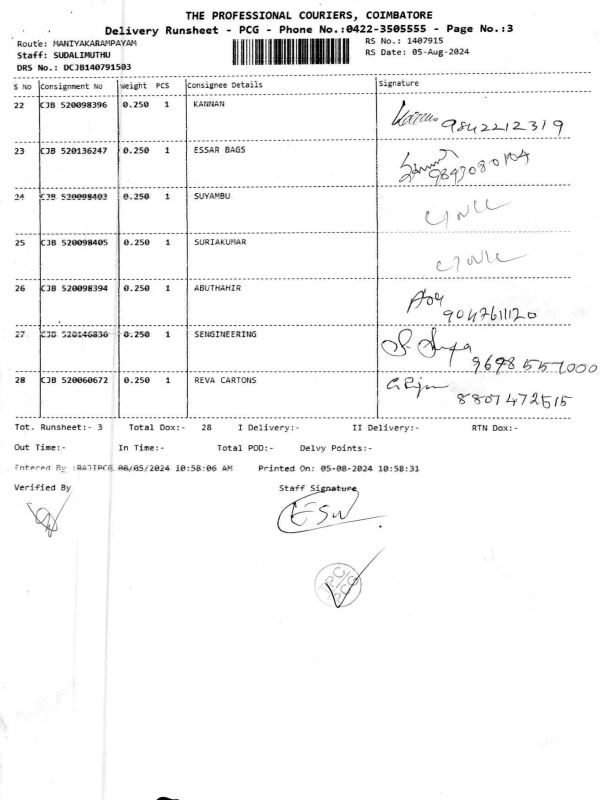 THE PROFESSIONAL COURIERS, COIMBATORE
Delivery Runsheet - PCG - Phone No.:0422-3505555 - Page No.:3
Route: MANIYAKARAMPAYAM
RS No.: 1407915
Staff: SUDALIMUTHU
RS Date: 05-Aug-2024
DRS No.: DCJB140791503
S No Consignment No Weight PCS Consignee Details Signature
22 CJB 520098396 0.250 1 KANNAN 9842212319
23 CJB 520136247 0.250 1 ESSAR BAGS 9843080104
24 CJB 520098403 0.250 1 SUYAMBU
25 CJB 520098405 0.250 1 SURIAKUMAR
26 CJB 520098394 0.250 1 ABUTHAHIR
9047611120
27 CJB 520146836 0.250 1 SENGINEERING
9698557000
28 CJB 520060672 0.250 1 REVA CARTONS
8807472515
Tot. Runsheet:- 3 Total Dox:- 28 I Delivery:- II Delivery:- RTN Dox:-
Out Time:- In Time:- Total POD:- Delvy Points:-
Entered By :RAJIPCG 08/05/2024 10:58:06 AM Printed On: 05-08-2024 10:58:31
Verified By Staff Signature
ESW